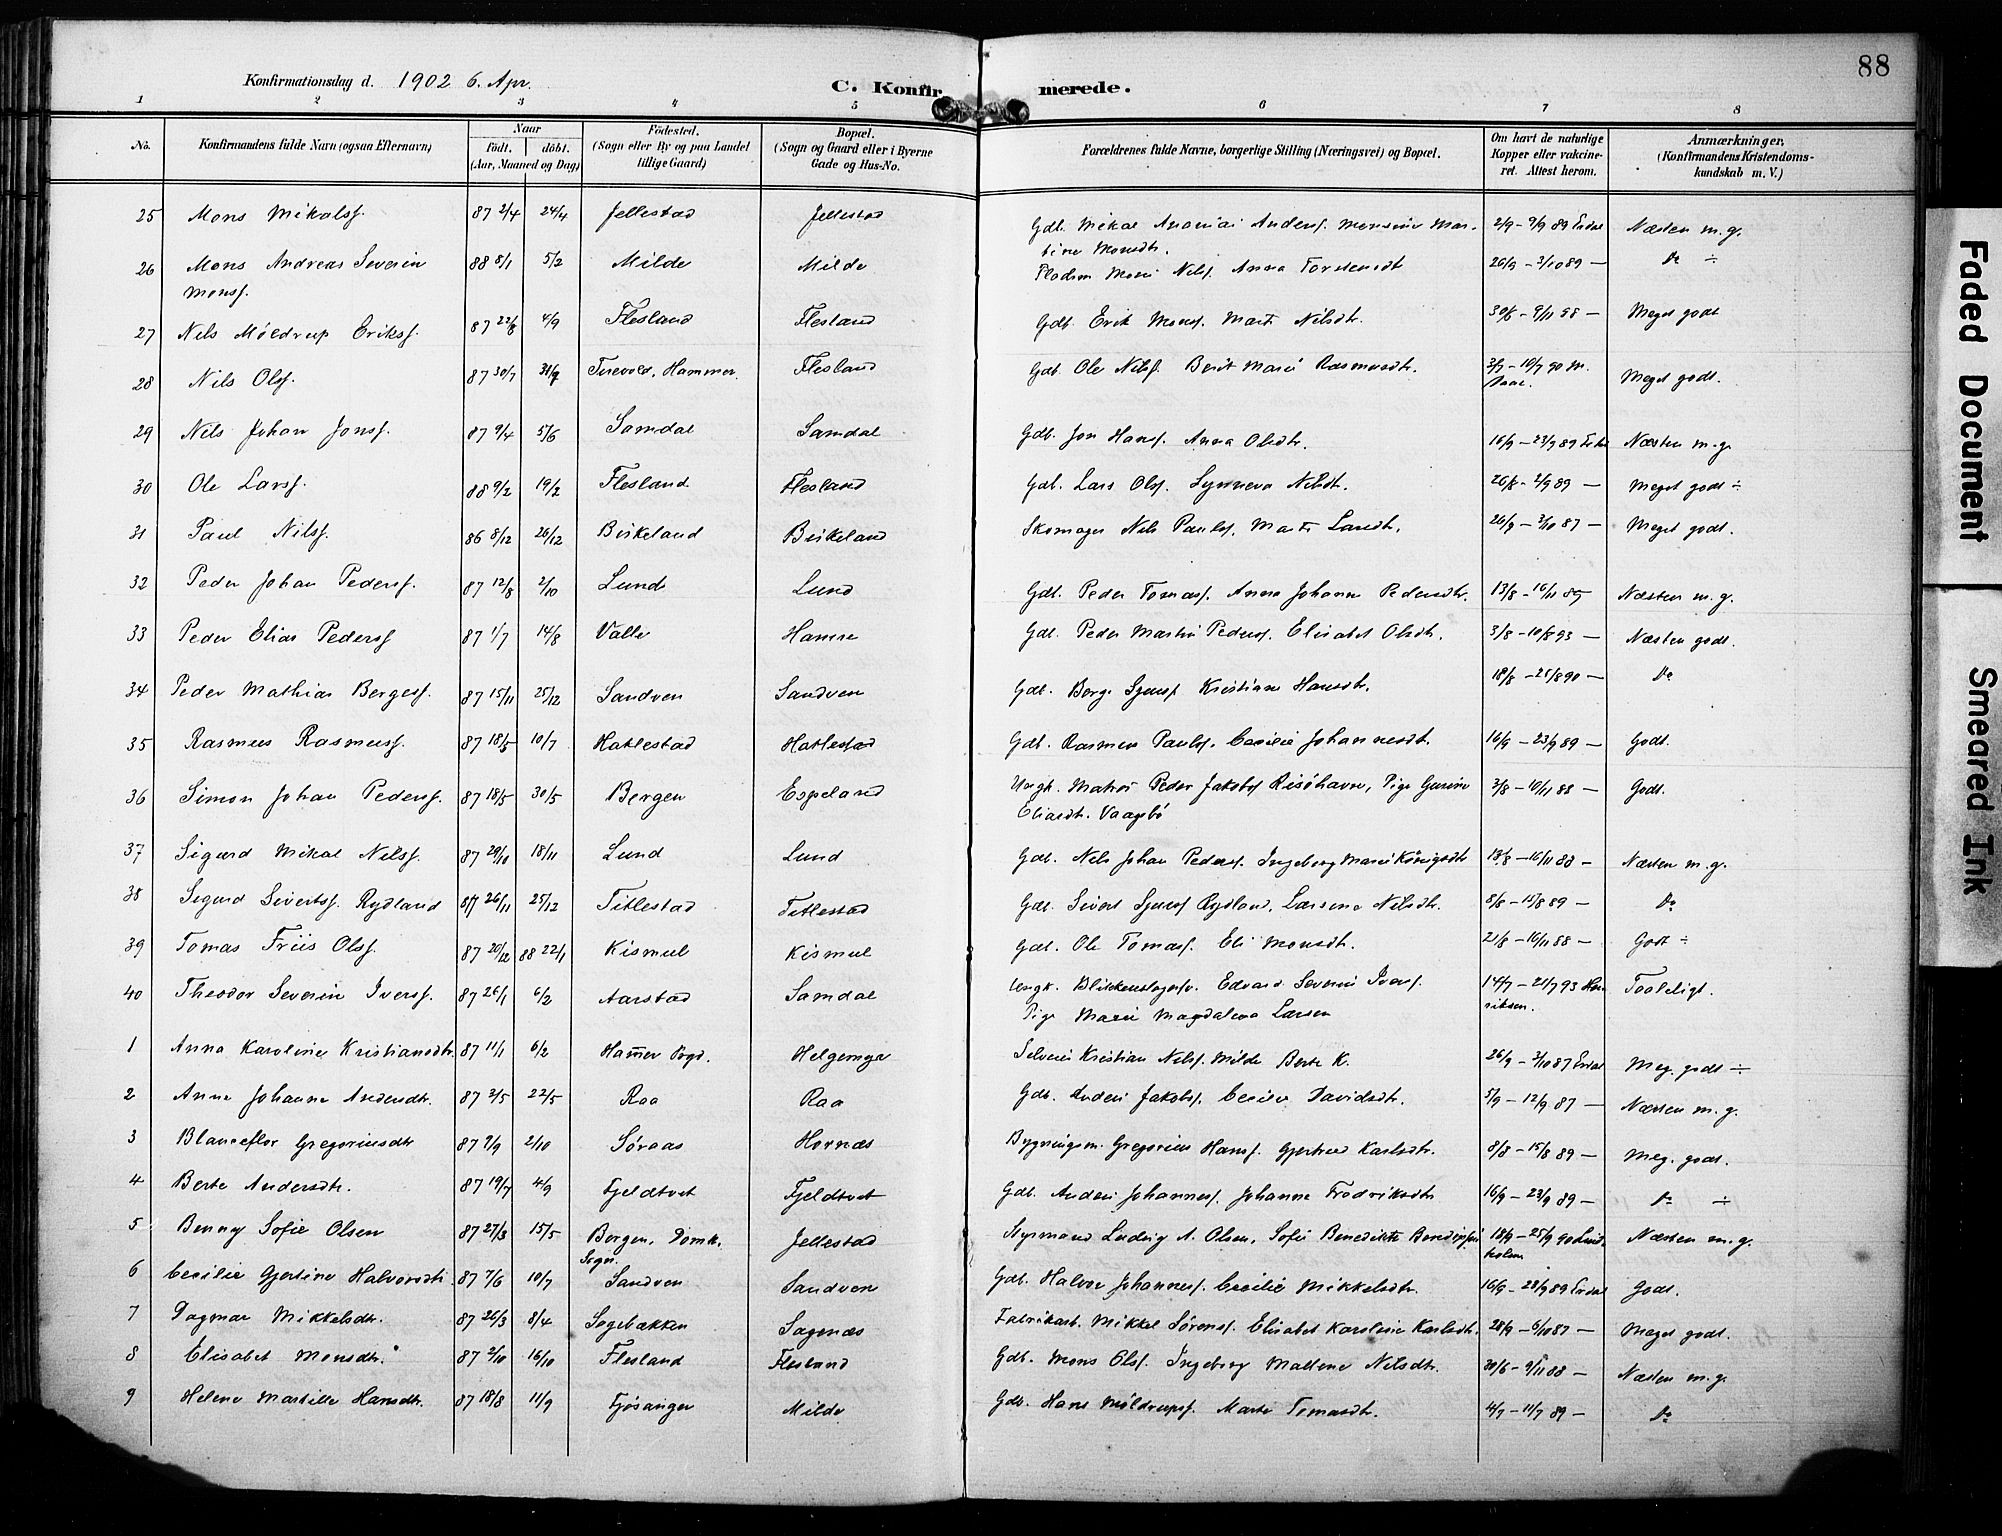 88
Konfirmationsdag d. 1902 6. Apr.
C. Konfirmerede.
1 2 3 4 5 6 7 8
No. Konfirmandens fulde Navn (ogsaa Efternavn) Naar født. døbt. (Aar, Maaned og Dag) Fødested. (Sogn eller By og paa Landet tillige Gaard) Bopæl. (Sogn og Gaard eller i Byerne Gade og Hus-No. Forældrenes fulde Navne, borgerlige Stilling (Næringsvei) og Bopæl. Om havt de naturlige Kopper eller vakcineret. Attest herom. Anmærkninger. (Konfirmandens Kristendomskundskab m. V.)
25 Mons Mikalsf. 87 2/4 24/4 Jellestad Jellestad Gdb. Mikal Andersf. Monsine Martine Monsdtr. 2/9 - 9/9 89 Erdal Næsten m. g.
26 Mons Andreas Severin Monsf. 88 8/1 5/2 Milde Milde Nilsf. Anna Torstensdt 26/9 - 3/10 89 — Do ÷
27 Nils Møldrup Eriksf. 87 22/8 4/9 Flesland Flesland Gdb. Erik Monsf. Marta Nilsdtr. 30/6 - 9/11 98 — Meget godt
28 Nils Olsf. 87 30/7 31/7 Hammer. Flesland Gdb. Ole Nilsf. Berit Marie Rasmusdtr. 3/7 - 10/7 90 Meget godt.
29 Nils Johan Jonsf. 87 9/4 5/6 Samdal Samdal Gdb. Jon Hansf. Anna Olsdtr. 16/9 - 23/9 89 Erdal Næsten m. g.
30 Ole Larsf. 88 9/2 19/2 Flesland Flesland Gdb. Lars Olsf. Synneva Nilsdt. 26/8 - 2/9 89 — Meget godt ÷
31 Paul Nilsf. 86 8/12 26/12 Birkeland Birkeland Skomager Nils Paulsf. Marta Larsdtr. 26/9 - 3/10 87 — Meget godt.
32 Peder Johan Pedersf. 87 12/8 2/10 Lund Lund Gdb. Peder Tomasf. Anna Johanne Pedersdtr. 13/8 - 16/11 89 Næsten m. g.
33 Peder Elias Pedersf 87 1/7 14/8 Valle Hamre Gdb. Peder Martin Pedersf. Elisabet Olsdtr. 3/8 - 10/8 93 — Næsten godt.
34 Peder Mathias Bergesf. 87 15/11 25/12 Sandven Sandven Gdb. Berge Sjursf Kristiane Hansdtr. 18/8 - 25/8 90 — Do
35 Rasmus Rasmusf. 87 18/5 10/7 Hatlestad Hatlestad Gdb. Rasmus Paulsf. Cecilie Johannesdt. 16/9 - 23/9 89 — Godt.
36 Simon Johan Pedersf. 87 18/5 30/5 Bergen Espeland Ungk. Matros Peder Jakobsf Risøhavn, Pige Gurine Eliasdtr. Vaagebø 3/8 - 10/11 88 — Godt.
37 Sigurd Mikal Nilsf. 87 29/10 18/11 Lund Lund Gdb. Nils Johan Pedersf. Ingeborg Marie Königsdtr 18/8 - 16/11 88 - Næsten m. g.
38 Sigurd Sivertsf. Rydland 87 26/11 25/12 Titlestad Titlestad Gdb. Sivert Sjursf Rydland, Larsina Nilsdtr. 8/8 - 15/8 89 — Do
39 Tomas Friis Olsf. 87 20/12 88 22/1 Kismul Kismul Gdb. Ole Tomasf. Eli Monsdtr. 21/8 - 16/11 88 — Godt ÷
40 Theodor Severin Iversf. 87 26/1 6/2 Aarstad Samdal Ungk. Blikkenslager Edvard Severin Iversf. Pige Marie Magdalena Larsen 14/7 - 21/7 93 Henriksen. Taaleligt.
1 Anna Karoline Kristiansdtr. 87 11/1 6/2 Hamer Helgemyr Kristian Nilsf. Milde Berte K. 26/9 - 3/10 87 Erdal Meg. godt ÷
2 Anna Johanne Andersdtr. 87 2/5 22/5 Raa Raa Gdb. Anders Jakobsf. Cecilie Davidsdtr. 5/9 - 12/9 87 — Næsten m. g.
3 Blanceflor Gregoriusdtr 87 7/9 2/10 Søraas Hornæs Bygningsm. Gregorius Hansf. Gjertrud Karlsdtr. 8/8 - 15/8 89 — Meg. godt.
4 Berte Andersdtr. 87 19/7 4/9 Fjeldtvet Fjeldtvet Gdb. Anders Johannesf. Johanna Fredriksdtr 16/9 - 23/9 89 — Do ÷
5 Benny Sofie Olsen 87 27/3 15/5 Bergen, Domk. Sogn. Jellestad Styrmand Ludvig A. Olsen, Sofie Benedikte 18/9 - 25/9 90 Lindholm Næsten m. g.
6 Cecilie Gjertine Halvorsdtr. 87 7/6 10/7 Sandven Sandven Gdb. Halvor Johannesf. Cecilie Mikkelsdtr. 16/9 - 23/9 89 Erdal Godt.
7 Dagmar Mikkelsdtr. 87 26/3 8/4 Sagebakken Sagenæs Fabrikarb. Mikkel Sørensf. Elisabet Karoline Karlsdtr. 28/9 - 6/10 87 — Meget godt.
8 Elisabet Monsdtr. 87 2/10 16/10 Flesland Flesland Gdb. Mons Olsf. Ingeborg Maltene Nilsdtr. 30/6 - 9/11 88 — Næsten m. g.
9 Helene Martille Hansdtr. 87 18/8 11/9 Fjøsanger Milde Gdb. Hans Møldrupsf. Marta Tomasdtr. 4/7 - 11/7 89 — Do
Faded Document
Smeared Ink